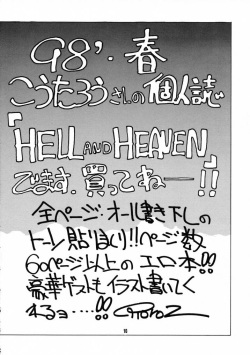 98'・春
こうたろうさんの個人誌
『HELL AND HEAVEN』
でます。買ってねー!!
全ページ・オール書き下しの
トーン貼りまくり!!ページ数
60ページ以上のエロ本!!
豪華ゲストもイラスト書いてく
れるョ・・・・!!